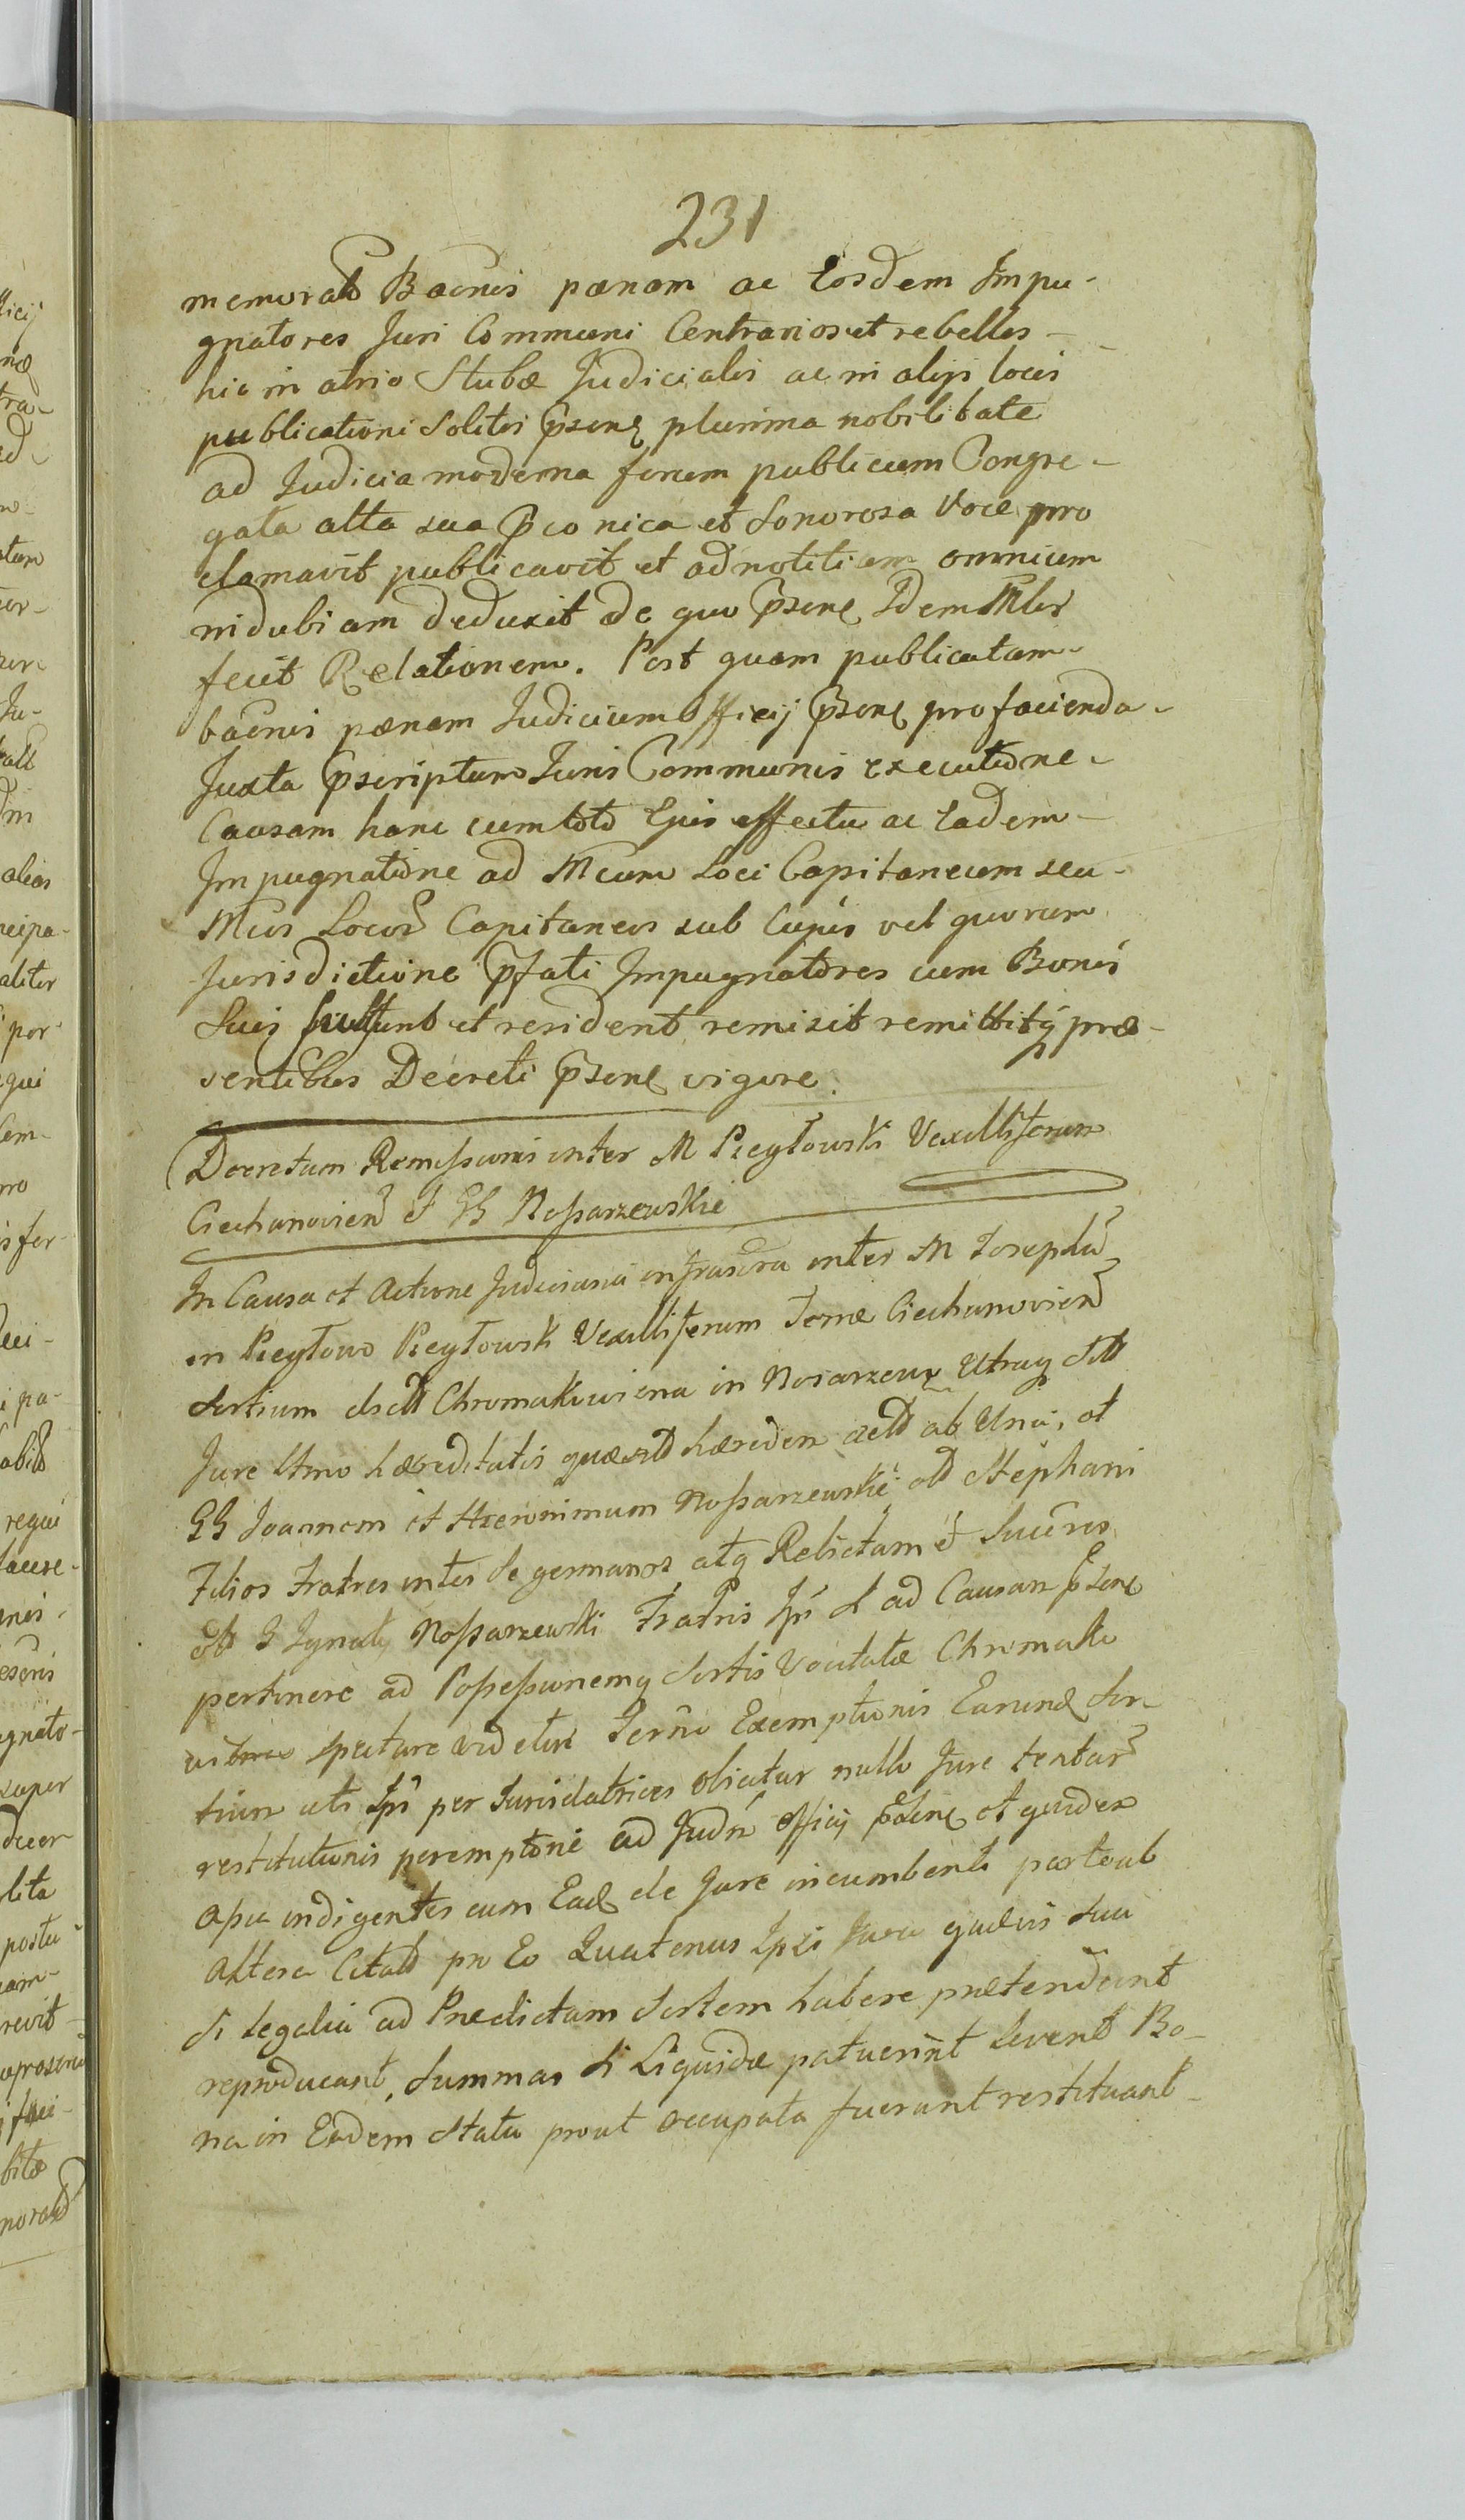 231
memorato Baenis pænam ac Eosdem Impu-
gnatores Juri Communi Contrarios et rebelles
hic in atrio Stubæ Judicialis ac in alijs locis
publicationi Solitis pzene plurima nobilitate
ad Judicia moderna forum publicum Congre-
gata alta sua pconica et Sonorosa Voce pro
clamavit publicavit et ad notitiam omnium
indubiam deduxit de quo pzene Idem Mlis
fecit Relationem. Post quam publicatam
baenis pænam Judicium Officij pzene pro facienda
Juxta pscriptum Juris Communis executione
Causam hanc cum toto Ejus effectu ac Eadem
Impugnatione ad Mcum Loci Capitaneum seu
Mcos Locor Capitaneos sub Cujus vel quorum
Jurisdictione pfati Impugnatores cum Bonis
Suis et resident remisit remittitq præ-
sentibus Decreti pzene vigore.
Decretum Remissionis inter M Pieglowski Vexilliferum
Ciechanovien et GG Nossarzewskie
In Causa et Actione Judiciaria infrascra inter M Josephu
in Pieglowo Pieglowski Vexilliferum Terræ Ciechanovien
Sortium dictt Chromakowizna in Nosarzewo Utraq Sitt
Jure Umo hæreditatis quæsitt hæredem actt ab Una, et
GG Joannem et Hieronimum Nossarzewskie ott Stephani
Filios Fratres inter Se germanos atq Relictam et Succres
ott G Ignatij Nossarzewski Fratris Ipsi S ad Causam pzene
pertinere ad Possessionemq Sortis Vocitatæ Chromako
wizna spectare videtur Termo Exemptionis Earund Sor
tium uti Ipsi per Jurisdatrices obicitur nullo Jure tentar
restitutionis peremptorie ad Judm Officij pzene et quidem
apu indigentes cum Ead de Jure incumbenti parte ab
Altera Citatt pro Eo Quatenus Ipsi Jura quævis Sua
Si Legalia ad Prædictam Sortem habere prætendunt
reproducant, Summas Si Liquidæ patuerint Levent Bo-
na in Eodem Statu prout occupata fuerunt restituant